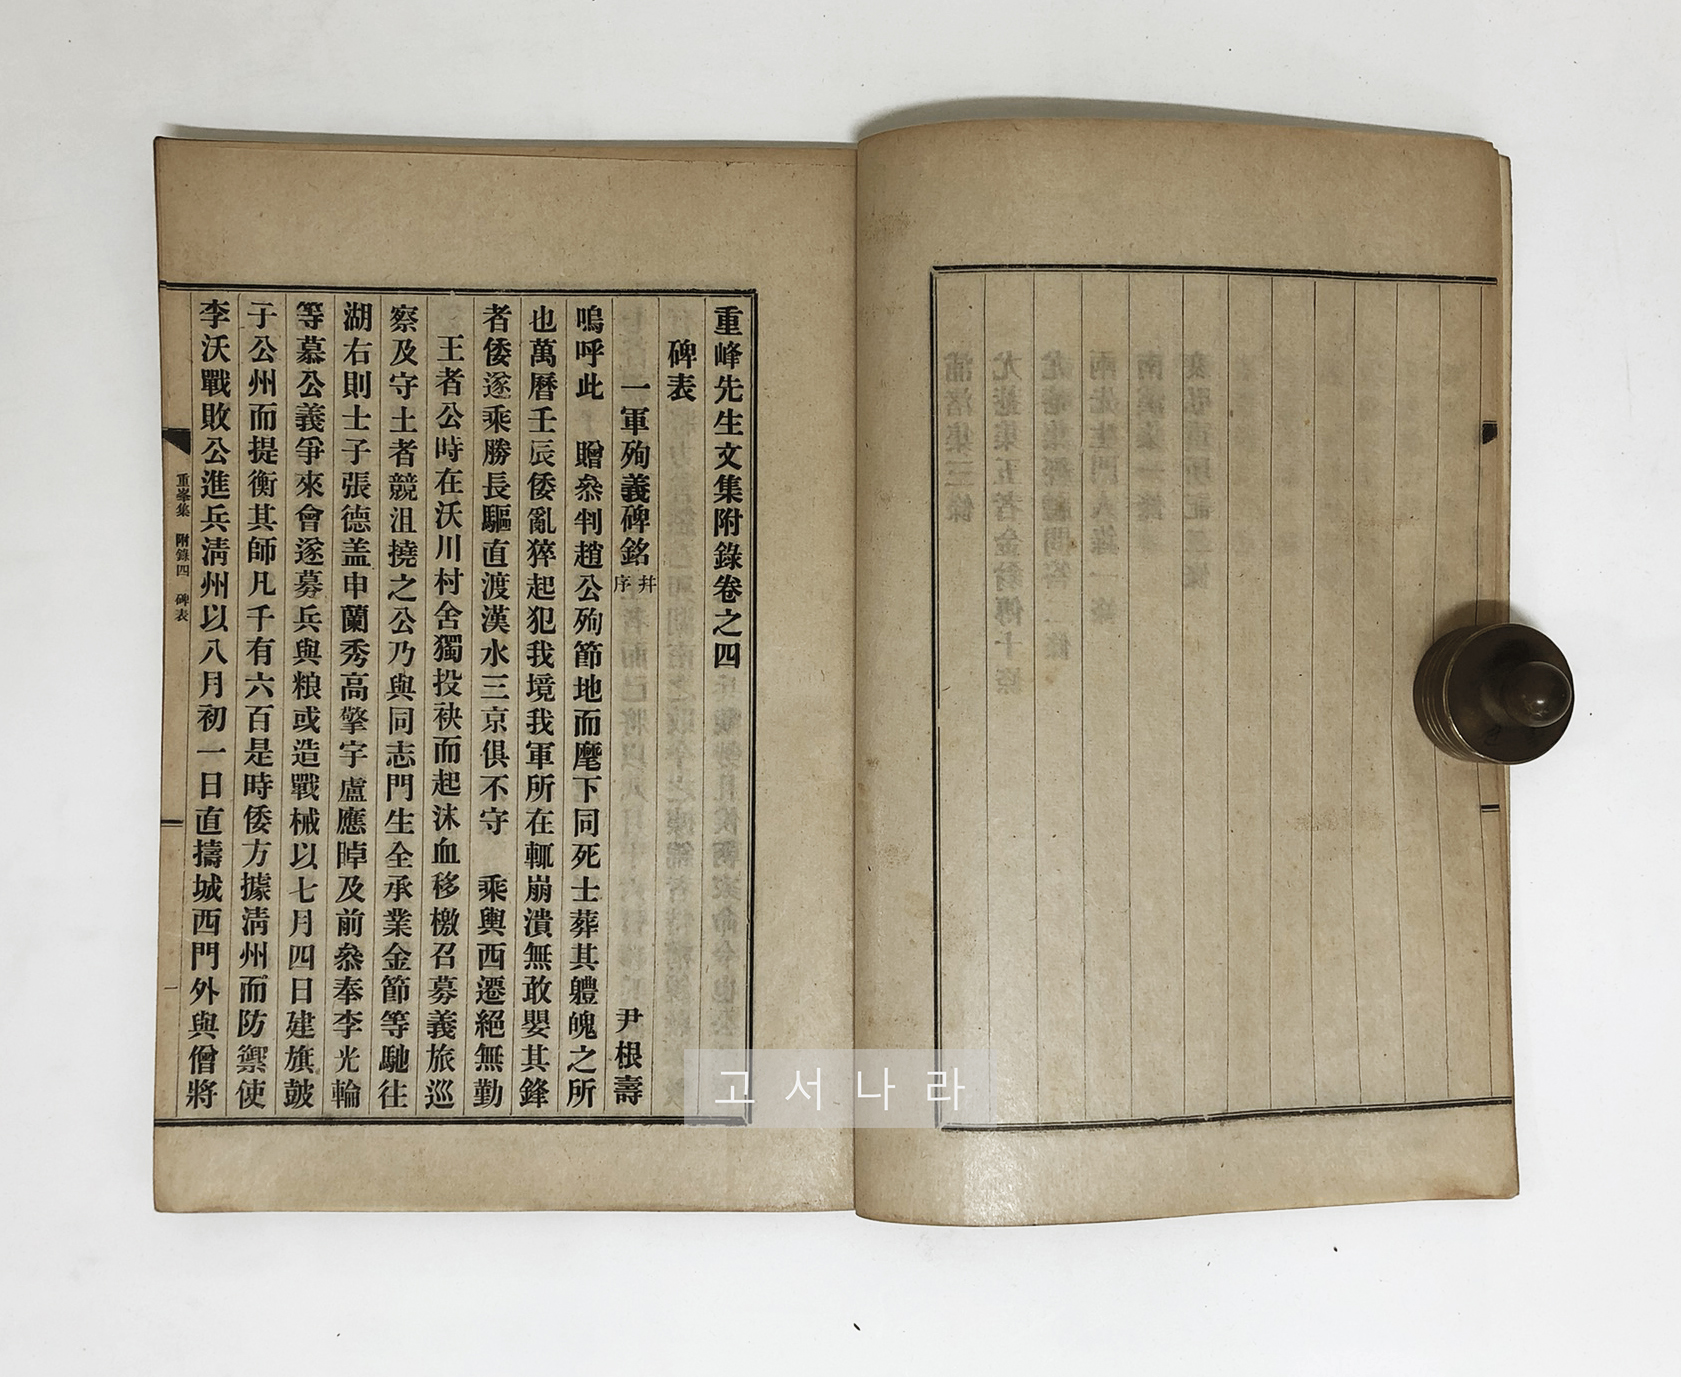 重峰先生文集附錄卷之四
碑表
一軍殉義碑銘 幷序 尹根壽
嗚呼此 贈叅判趙公殉節地而麾下同死士葬其軆魄之所
也萬曆壬辰倭亂猝起犯我境我軍所在輒崩潰無敢嬰其鋒
者倭遂乘勝長驅直渡漢水三京俱不守 乘輿西遷絕無勤
王者公時在沃川村舍獨投袂而起沬血移檄召募義旅巡
察及守土者競沮撓之公乃與同志門生全承業金節等馳往
湖右則士子張德盖申蘭秀高擎宇盧應晫及前叅奉李光輪
等慕公義爭來會遂募兵與粮或造戰械以七月四日建旗皷
于公州而提衡其師凡千有六百是時倭方據淸州而防禦使
李沃戰敗公進兵淸州以八月初一日直擣城西門外與僧將
重峯集 附錄四 碑表
一
고서나라